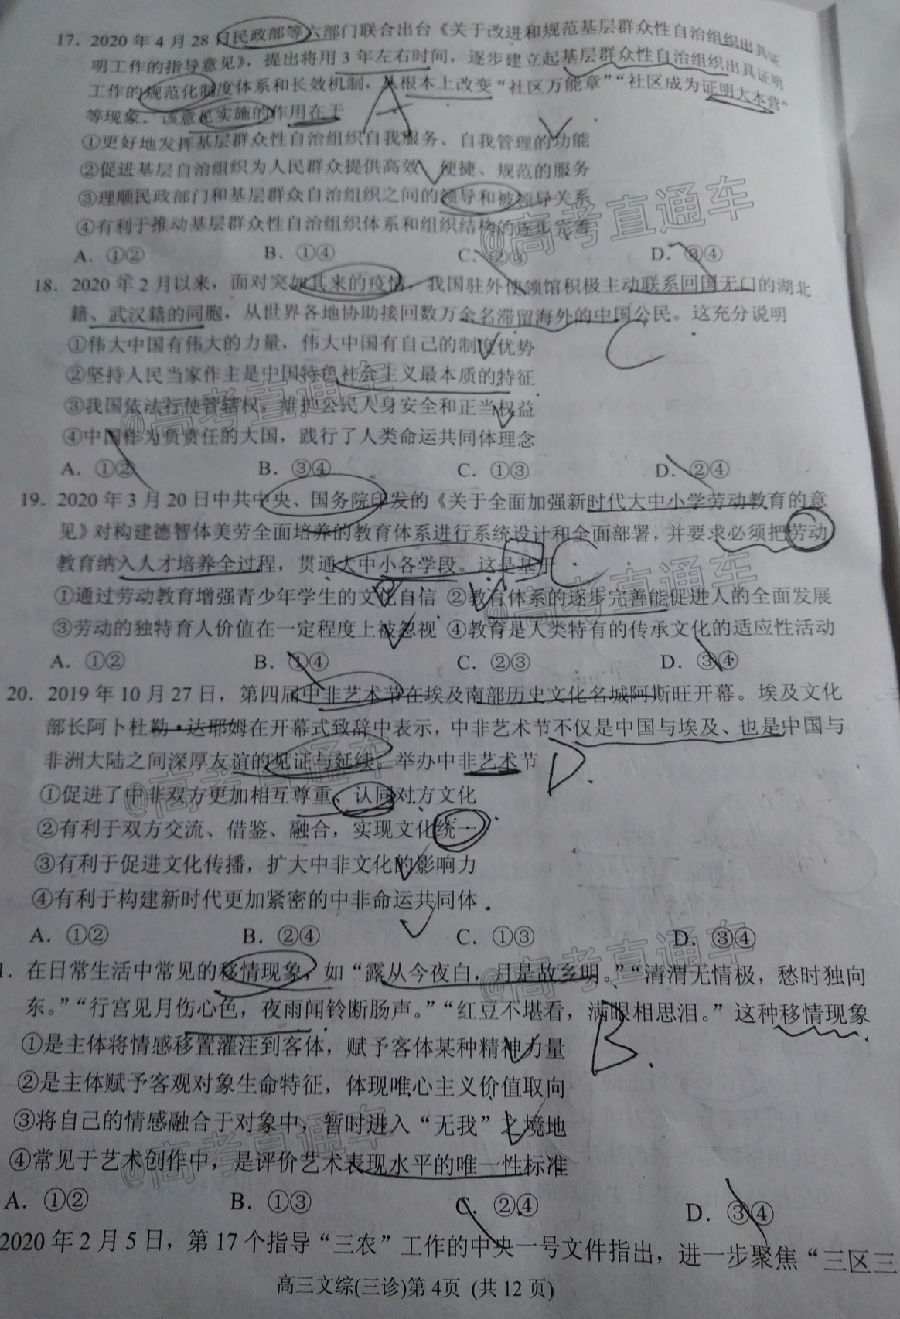 17. 2020 年 4 月 28 日民政部等六部门联合出台《关于改进和规范基层群众性自治组织出具证
明工作的指导意见》，提出将用 3 年左右时间，逐步建立起基层群众性自治组织出具证明
工作的规范化制度体系和长效机制，从根本上改变“社区万能章”“社区成为证明大本营”
等现象。该意见实施的作用在于
A
①更好地发挥基层群众性自治组织自我服务、自我管理的功能
②促进基层自治组织为人民群众提供高效、便捷、规范的服务
③理顺民政部门和基层群众自治组织之间的领导和被领导关系
④有利于推动基层群众性自治组织体系和组织结构的逐步完善
A. ①② B. ①④ C. ②③ D. ③④
18. 2020 年 2 月以来，面对突如其来的疫情，我国驻外使领馆积极主动联系回国无门的湖北
籍、武汉籍的同胞，从世界各地协助接回数万余名滞留海外的中国公民。这充分说明
C
①伟大中国有伟大的力量，伟大中国有自己的制度优势
②坚持人民当家作主是中国特色社会主义最本质的特征
③我国依法行使管辖权，维护公民人身安全和正当权益
④中国作为负责任的大国，践行了人类命运共同体理念
A. ①② B. ③④ C. ①③ D. ②④
19. 2020 年 3 月 20 日中共中央、国务院印发的《关于全面加强新时代大中小学劳动教育的意
见》对构建德智体美劳全面培养的教育体系进行系统设计和全面部署，并要求必须把劳动
教育纳入人才培养全过程，贯通大中小各学段。这是基于
C
①通过劳动教育增强青少年学生的文化自信 ②教育体系的逐步完善能促进人的全面发展
③劳动的独特育人价值在一定程度上被忽视 ④教育是人类特有的传承文化的适应性活动
A. ①② B. ①④ C. ②③ D. ③④
20. 2019 年 10 月 27 日，第四届中非艺术节在埃及南部历史文化名城阿斯旺开幕。埃及文化
部长阿卜杜勒·达耶姆在开幕式致辞中表示，中非艺术节不仅是中国与埃及、也是中国与
非洲大陆之间深厚友谊的见证与延续。举办中非艺术节
D.
①促进了中非双方更加相互尊重、认同对方文化
②有利于双方交流、借鉴、融合，实现文化统一
③有利于促进文化传播，扩大中非文化的影响力
④有利于构建新时代更加紧密的中非命运共同体
A. ①② B. ②④ C. ①③ D. ③④
1. 在日常生活中常见的移情现象，如“露从今夜白，月是故乡明。”“清渭无情极，愁时独向
东。”“行宫见月伤心色，夜雨闻铃断肠声。”“红豆不堪看，满眼相思泪。”这种移情现象
B.
①是主体将情感移置灌注到客体，赋予客体某种精神力量
②是主体赋予客观对象生命特征，体现唯心主义价值取向
③将自己的情感融合于对象中，暂时进入“无我”之境地
④常见于艺术创作中，是评价艺术表现水平的唯一性标准
A. ①② B. ①③ C. ②④ D. ③④
2020 年 2 月 5 日，第 17 个指导“三农”工作的中央一号文件指出，进一步聚焦“三区三
高三文综(三诊)第 4页 (共 12 页)
@高考直通车
@高考直通车
@高考直通车
@高考直通车
@高考直通车
@高考直通车